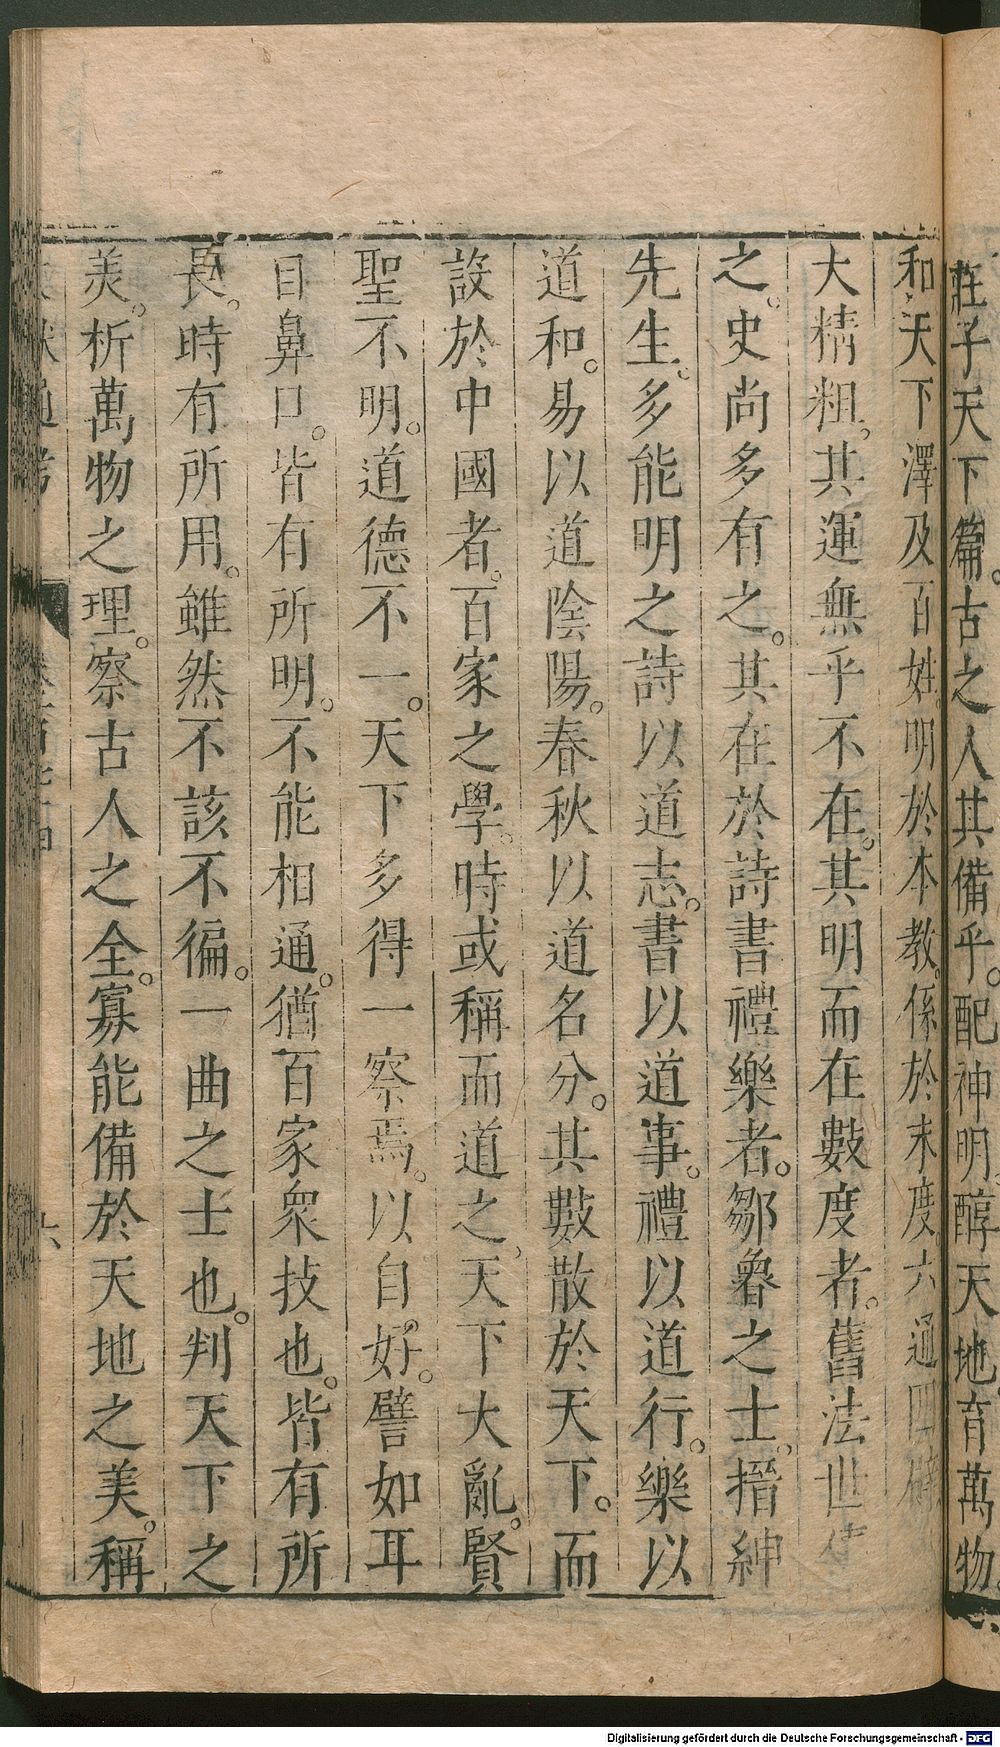 莊子天下篇。古之人其備乎。配神明。醇天地。育萬物。
和天下。澤及百姓。明於本教。係於末度。六通四
大精粗。其運無乎不在。其明而在數度者。舊法世
之。史尚多有之。其在於詩書禮樂者。鄒魯之士。搢紳
先生。多能明之詩以道志。書以道事。禮以道行。樂以
道和。易以道陰陽。春秋以道名分。其數散於天下。而
設於中國者。百家之學。時或稱而道之。天下大亂。賢
聖不明。道德不一。天下多得一察焉。以自好。譬如耳
目鼻口。皆有所明。不能相通。猶百家衆技也。皆有所
長。時有所用。雖然不該不徧。一曲之士也。判天下之
美。析萬物之理。察古人之全。寡能備於天地之美。稱
六
Digitalisierung gefördert durch die Deutsche Forschungsgemeinschaft - DFG